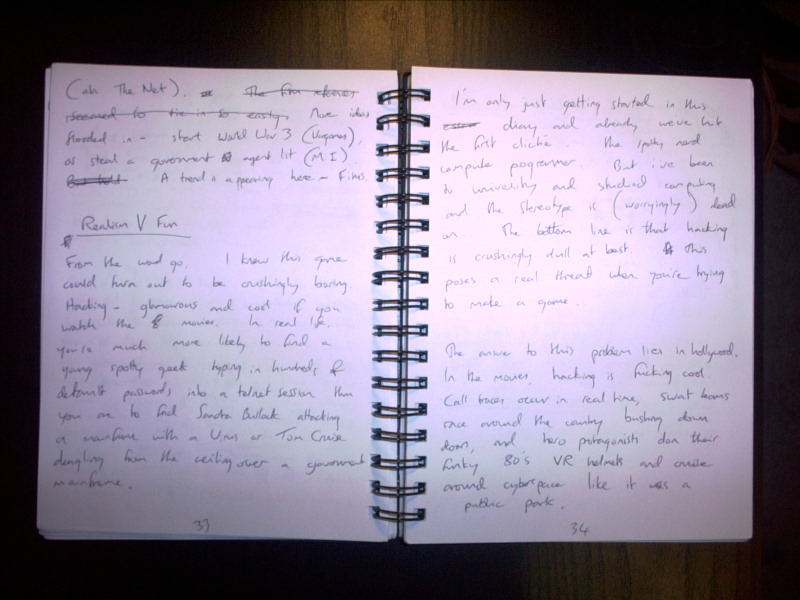 (aka The Net). The film references
seemed to tie in so easily. More ideas
flooded in - start World War 3 (Wargames),
or steal a government agent list (M:I).
A trend is appearing here - Films.
Realism V Fun
From the word go, I knew this game
could turn out to be crushingly boring.
Hacking - glamourous and cool if you
watch the movies. In real life,
you're much more likely to find a
young spotty geek typing in hundreds of
default passwords into a telnet session than
you are to find Sandra Bullock attacking
a mainframe with a Virus or Tom Cruise
dangling from the ceiling over a government
mainframe.
33
I'm only just getting started in this
diary and already we've hit
the first cliche. The spotty nerd
computer programmer. But i've been
to university and studied computing
and the stereotype is (worryingly) dead
on. The bottom line is that hacking
is crushingly dull at best. This
poses a real threat when you're trying
to make a game.
The answer to this problem lies in hollywood.
In the movies, hacking is fucking cool.
Call traces occur in real time, swat teams
race around the country busting down
doors, and hero protagonists don their
funky 80's VR helmets and cruise
around cyberspace like it was a
public park.
34